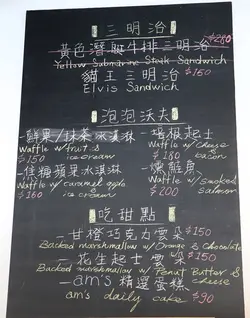 三明治
黃色潛艇牛排三明治 $280
Yellow Submarine Steak Sandwich
貓王三明治 $150
Elvis Sandwich
泡泡沃夫
鮮果/抹茶冰淇淋
Waffle w/ fruits
$150 ice cream
焦糖蘋果冰淇淋
Waffle w/ caramel apple
$160 ice cream
培根起士
Waffle w/ cheese
$180 bacon
燻鮭魚
Waffle w/ smoked
$200 salmon
吃甜點
甘橙巧克力雲朵 $150
Backed marshmallow w/ Orange & Chocolate
花生起士雲朵 $150
Backed marshmallow w/ Penut Butter & cheese
am's 精選蛋糕
am's daily cake $90